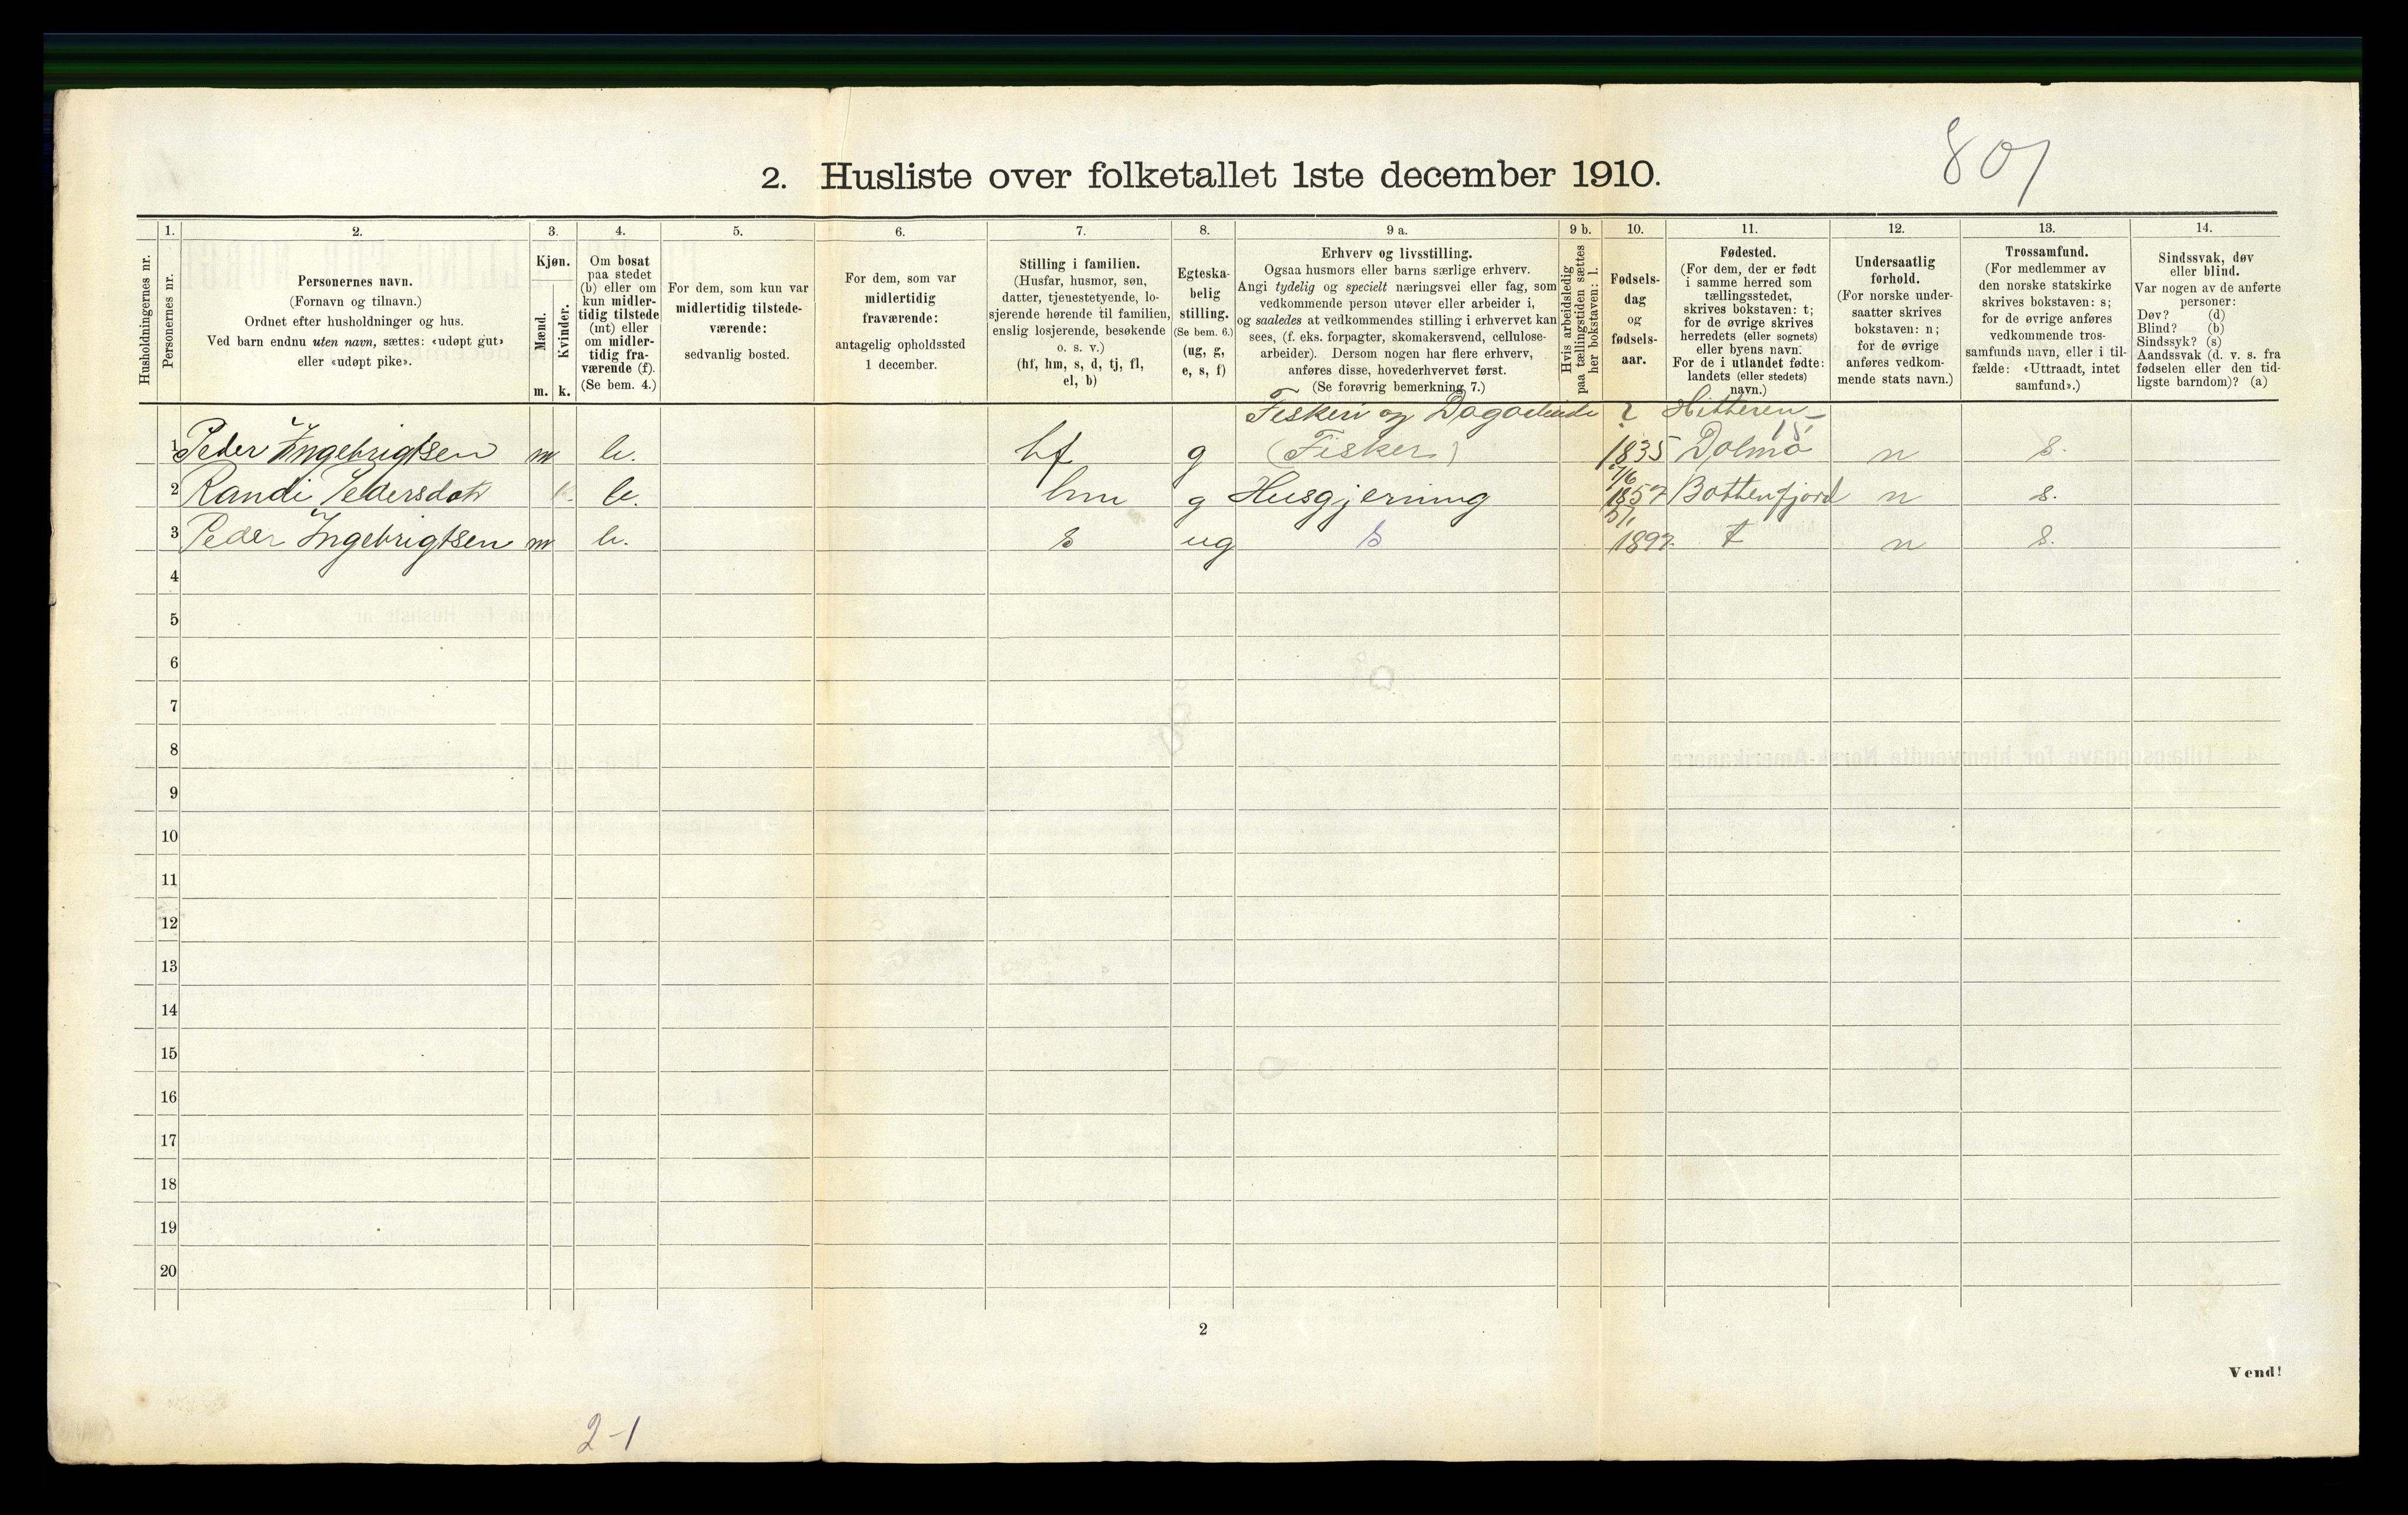 801
2. Husliste over folketallet 1ste december 1910.
Husholdningernes nr.
1.
Personernes nr.
2.
Personernes navn.
(Fornavn og tilnavn.)
Ordnet efter husholdninger og hus.
Ved barn endnu uten navn, sættes: «udøpt gut»
eller «udøpt pike».
3.
Kjøn.
Mænd.
Kvinder.
m. k.
4.
Om bosat
paa stedet
(b) eller om
kun midler-
tidig tilstede
(mt) eller
om midler-
tidig fra-
værende (f).
(Se bem. 4.)
5.
For dem, som kun var
midlertidig tilstede-
værende:
sedvanlig bosted.
6.
For dem, som var
midlertidig
fraværende:
antagelig opholdssted
1 december.
7.
Stilling i familien.
(Husfar, husmor, søn,
datter, tjenestetyende, lo-
sjerende hørende til familien,
enslig losjerende, besøkende
o. s. v.)
(hf, hm, s, d, tj, fl,
el, b)
8.
Egteska-
belig
stilling.
(Se bem. 6.)
(ug, g,
e, s, f)
9 a.
Erhverv og livsstilling.
Ogsaa husmors eller barns særlige erhverv.
Angi tydelig og specielt næringsvei eller fag, som
vedkommende person utøver eller arbeider i,
og saaledes at vedkommendes stilling i erhvervet kan
sees, (f. eks. forpagter, skomakersvend, cellulose-
arbeider). Dersom nogen har flere erhverv,
anføres disse, hovederhvervet først.
(Se forøvrig bemerkning 7.)
9 b.
Hvis arbeidsledig
paa tællingstiden sættes
her bokstaven: l.
10.
Fødsels-
dag
og
fødsels-
aar.
11.
Fødested.
(For dem, der er født
i samme herred som
tællingsstedet,
skrives bokstaven: t;
for de øvrige skrives
herredets (eller sognets)
eller byens navn.
For de i utlandet fødte:
landets (eller stedets)
navn.)
12.
Undersaatlig
forhold.
(For norske under-
saatter skrives
bokstaven: n;
for de øvrige
anføres vedkom-
mende stats navn.)
13.
Trossamfund.
(For medlemmer av
den norske statskirke
skrives bokstaven: s;
for de øvrige anføres
vedkommende tros-
samfunds navn, eller i til-
fælde: «Uttraadt, intet
samfund».)
14.
Sindssvak, døv
eller blind.
Var nogen av de anførte
personer:
Døv? (d)
Blind? (b)
Sindssyk? (s)
Aandssvak (d. v. s. fra
fødselen eller den tid-
ligste barndom)? (a)
Fiskeri og ? Hitteren
1 Peder Ingebrigtsen m b. hf g (Fisker) 1835 Dolmø n s.
2 Randi Pedersdatr k. b. hm g Husgjerning 1857 Bottenfjord n s.
3 Peder Ingebrigtsen m b. s ug s 1897. t n s.
4
5
6
7
8
9
10
11
12
13
14
15
16
17
18
19
20
2
Vend!
2-1